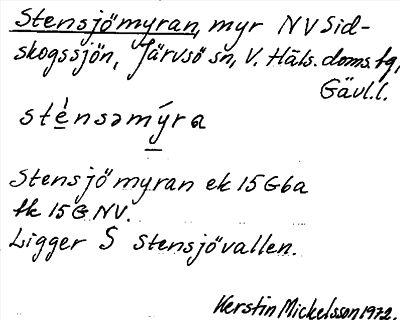 Stensjömyran, myr NV Sid-
skogssjön, Järvsö sn, V. Häls. doms. fg,
Gävl.l.
sténsəmýra
Stensjömyran ek 15G6a
tk 15G NV.
Ligger S Stensjövallen.
Kerstin Mickelsson 1972.